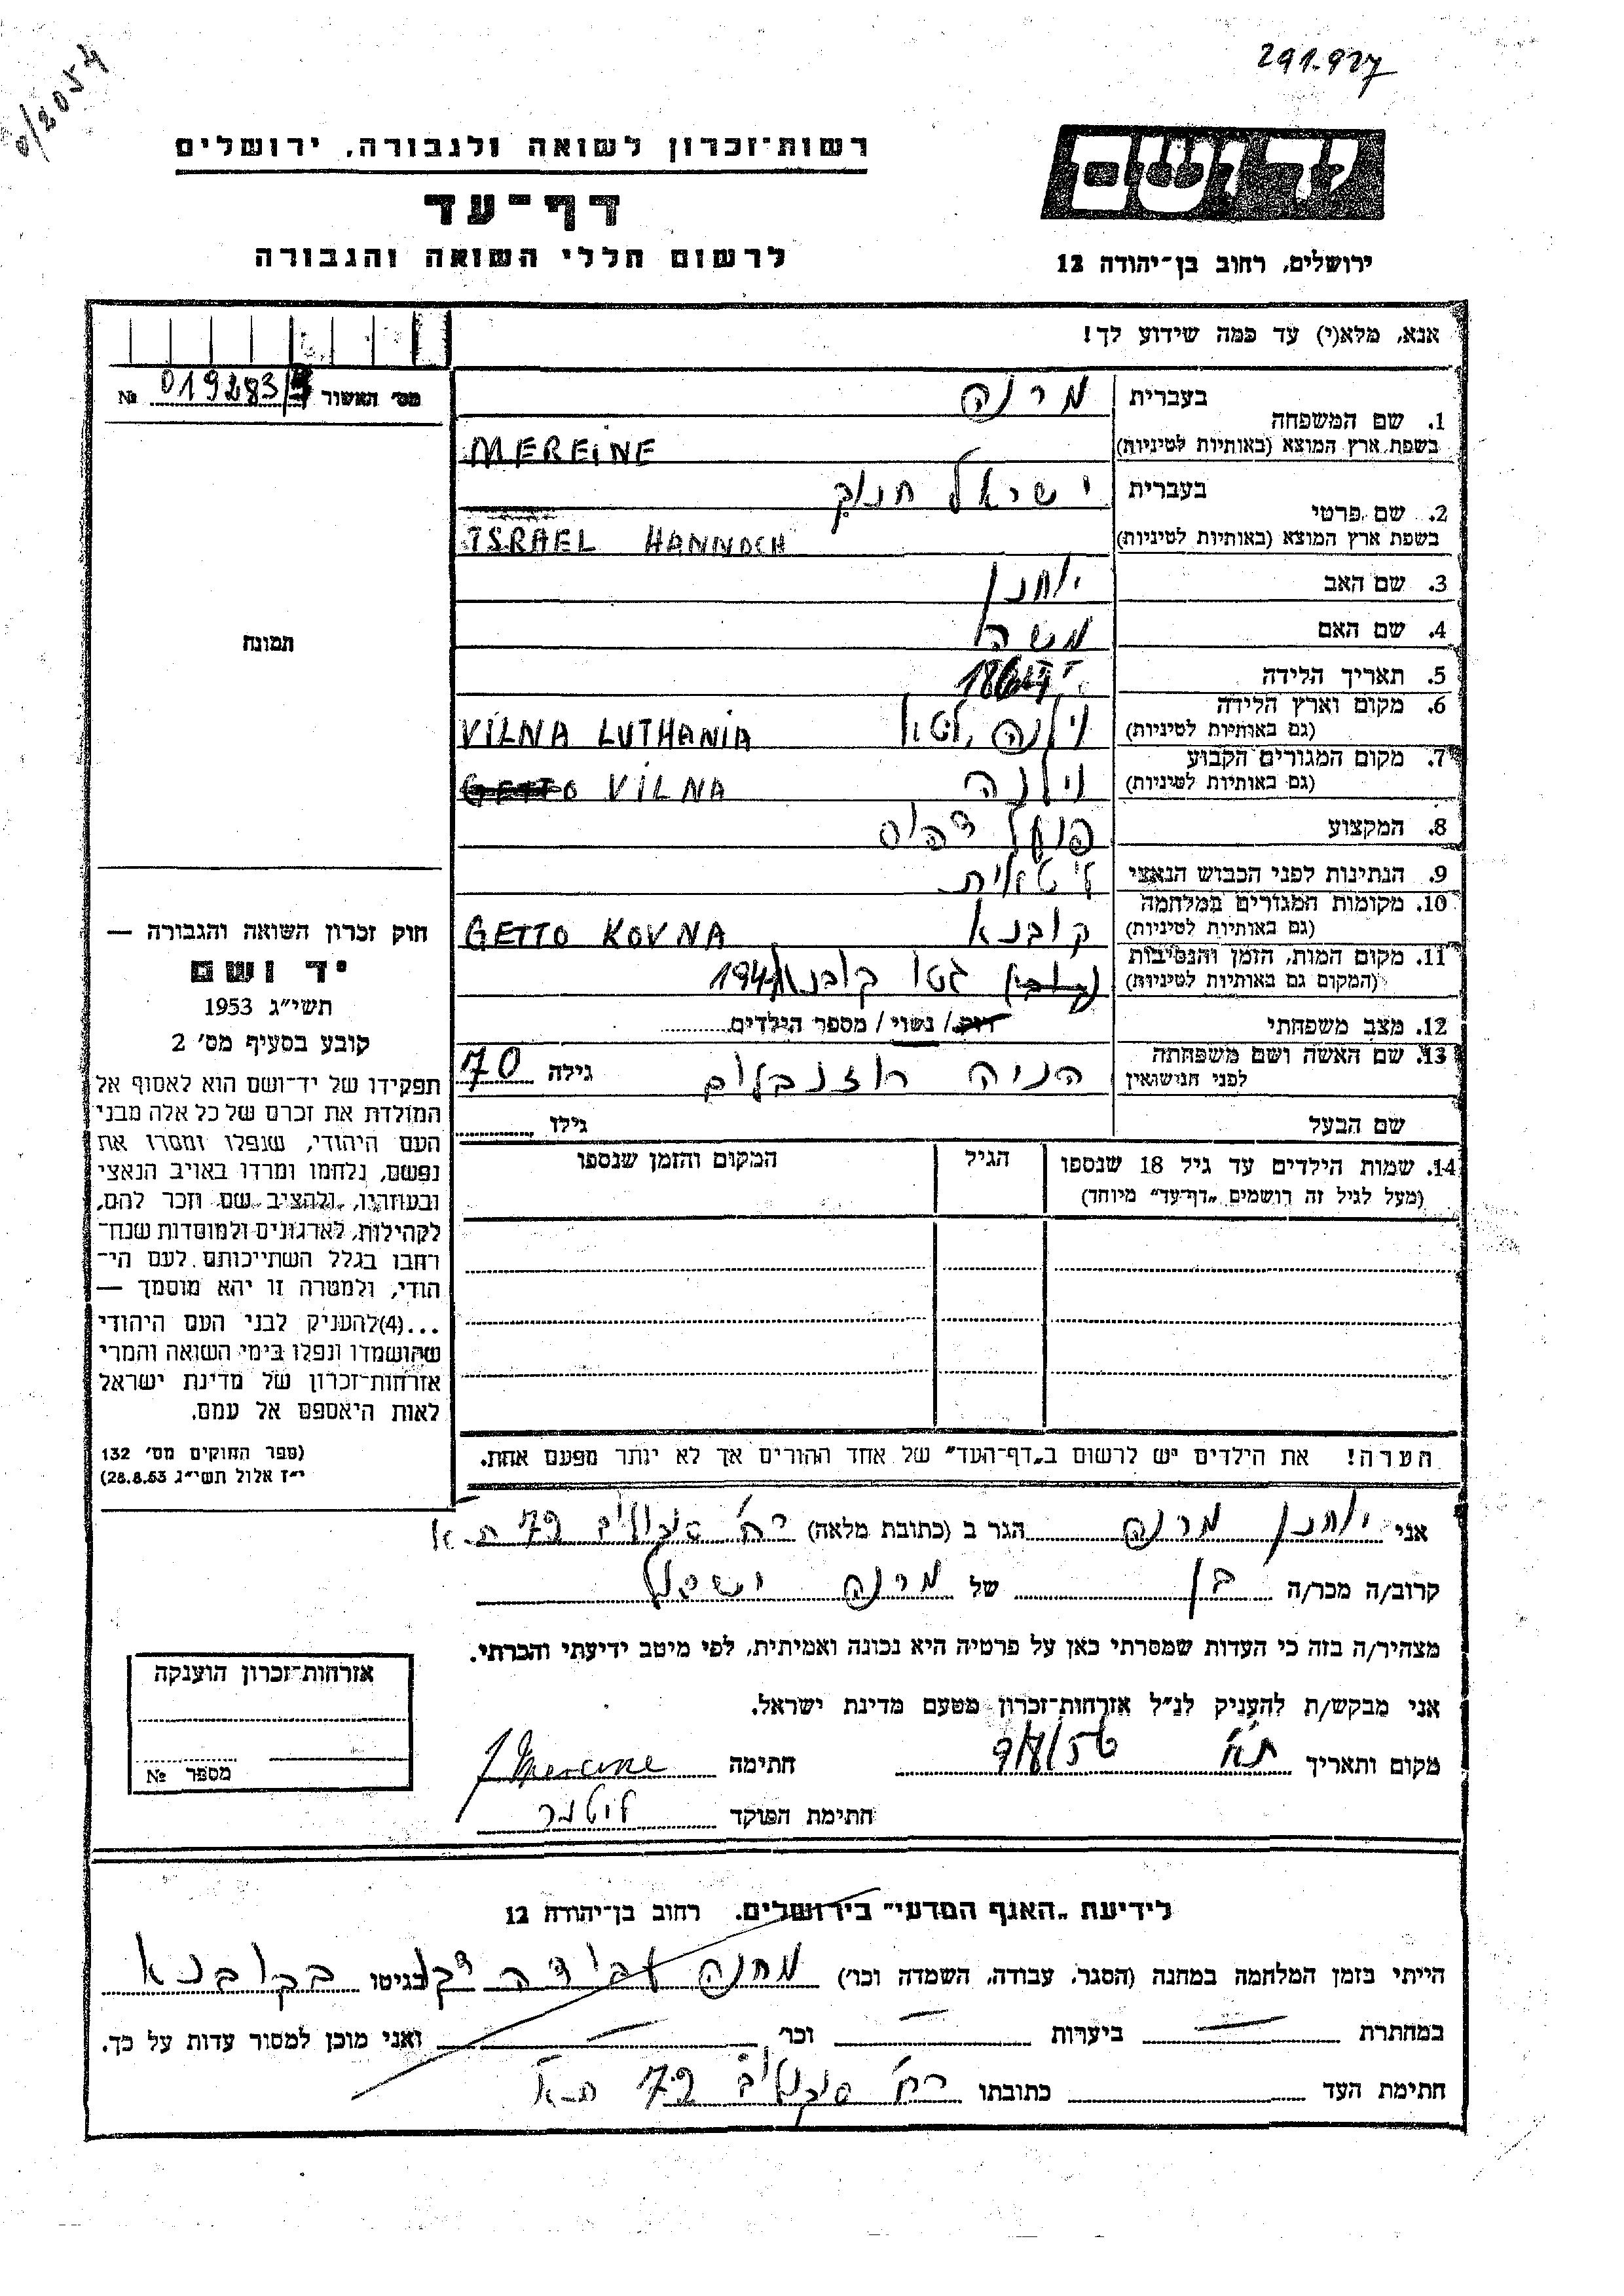 291.927
רשות־זכרון לשואה ולגבורה, ירושלים
דף־עד
לרשום חללי השואה והגבורה
ידושם
ירושלים, רחוב בן־יהודה 12
אנא, מלא(י) עד כמה שידוע לך!
מס׳ האשור 019283/ №
1. שם המשפחה
בעברית מרנה
בשפת ארץ המוצא (באותיות לטיניות) MEREINE
2. שם פרטי
בעברית ישראל חנוך
בשפת ארץ המוצא (באותיות לטיניות) ISRAEL HANNOCH
3. שם האב יוחנן
4. שם האם משה
5. תאריך הלידה
6. מקום וארץ הלידה
(גם באותיות לטיניות) וילנה, ליטא VILNA LUTHANIA
7. מקום המגורים הקבוע
(גם באותיות לטיניות) וילנה GETTO VILNA
8. המקצוע פועל דפוס
9. הנתינות לפני הכבוש הנאצי ליטאית
10. מקומות המגורים במלחמה
(גם באותיות לטיניות) קובנא GETTO KOVNA
11. מקום המות, הזמן והנסיבות
(המקום גם באותיות לטיניות) גטו קובנא 1941
12. מצב משפחתי רוק / נשוי / מספר הילדים
13. שם האשה ושם משפחתה
לפני הנישואין הניה רוזנבלום גילה 70
שם הבעל גילו
14. שמות הילדים עד גיל 18 שנספו
(מעל לגיל זה רושמים „דף־עד" מיוחד)
הגיל
המקום והזמן שנספו
הערה! את הילדים יש לרשום ב„דף־העד" של אחד ההורים אך לא יותר מפעם אחת.
תמונה
חוק זכרון השואה והגבורה —
יד ושם
תשי״ג 1953
קובע בסעיף מס׳ 2
תפקידו של יד־ושם הוא לאסוף אל
המולדת את זכרם של כל אלה מבני
העם היהודי, שנפלו ומסרו את
נפשם, נלחמו ומרדו באויב הנאצי
ובעוזריו, ולהציב שם וזכר להם,
לקהילות, לארגונים ולמוסדות שנח־
רחבו בגלל השתייכותם לעם הי־
הודי, ולמטרה זו יהא מוסמך —
...(4)להעניק לבני העם היהודי
שהושמדו ונפלו בימי השואה והמרי
אזרחות־זכרון של מדינת ישראל
לאות היאספם אל עמם.
(ספר החוקים מס׳ 132
י״ז אלול תשי״ג 28.8.53)
אני יוחנן מרנה הגר ב (כתובת מלאה) רח׳ 72 ת-א
קרוב/ה מכר/ה בן של מרנה ישראל
מצהיר/ה בזה כי העדות שמסרתי כאן על פרטיה היא נכונה ואמיתית, לפי מיטב ידיעתי והכרתי.
אני מבקש/ת להעניק לנ״ל אזרחות־זכרון מטעם מדינת ישראל.
מקום ותאריך ת״א חתימה J Mereine
חתימת הפוקד
אזרחות־זכרון הוענקה
מספר №
לידיעת „האגף המדעי" בירושלים. רחוב בן־יהודה 12
הייתי בזמן המלחמה במחנה (הסגר, עבודה, השמדה וכו׳) מחנה עבודה בגיטו בקובנא
במחתרת — ביערות — וכו׳ — ואני מוכן למסור עדות על כך.
חתימת העד כתובתו רח׳ 72 ת-א